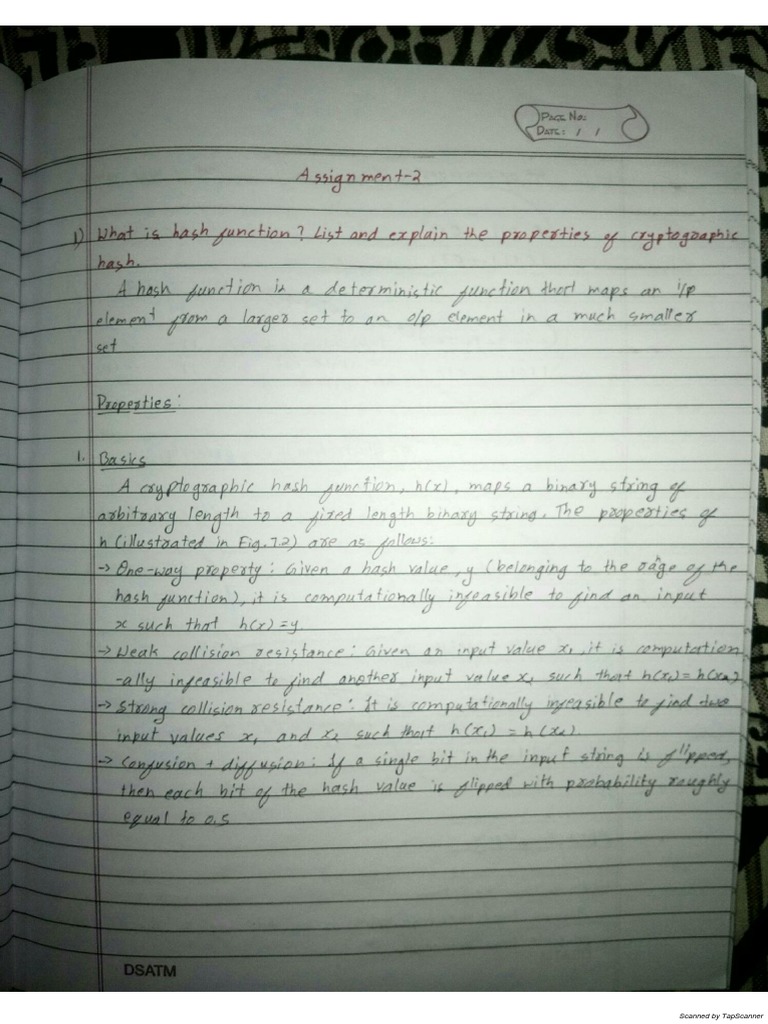 PAGE NO:
DATE: / /
Assignment-2
1) What is hash function? List and explain the properties of cryptographic
hash.
A hash function is a deterministic function that maps an i/p
element from a larger set to an o/p element in a much smaller
set
Properties:
1. Basics
A cryptographic hash function, h(x), maps a binary string of
arbitrary length to a fixed length binary string. The properties of
h (illustrated in Fig. 7.2) are as follows:
→ One-way property: Given a hash value, y (belonging to the range of the
hash function), it is computationally infeasible to find an input
x such that h(x) = y
→ Weak collision resistance: Given an input value x1, it is computation
-ally infeasible to find another input value x2 such that h(x1) = h(x2)
→ Strong collision resistance: It is computationally infeasible to find two
input values x1 and x2 such that h(x1) = h(x2).
→ Confusion + diffusion: If a single bit in the input string is flipped,
then each bit of the hash value is flipped with probability roughly
equal to 0.5
DSATM
Scanned by TapScanner